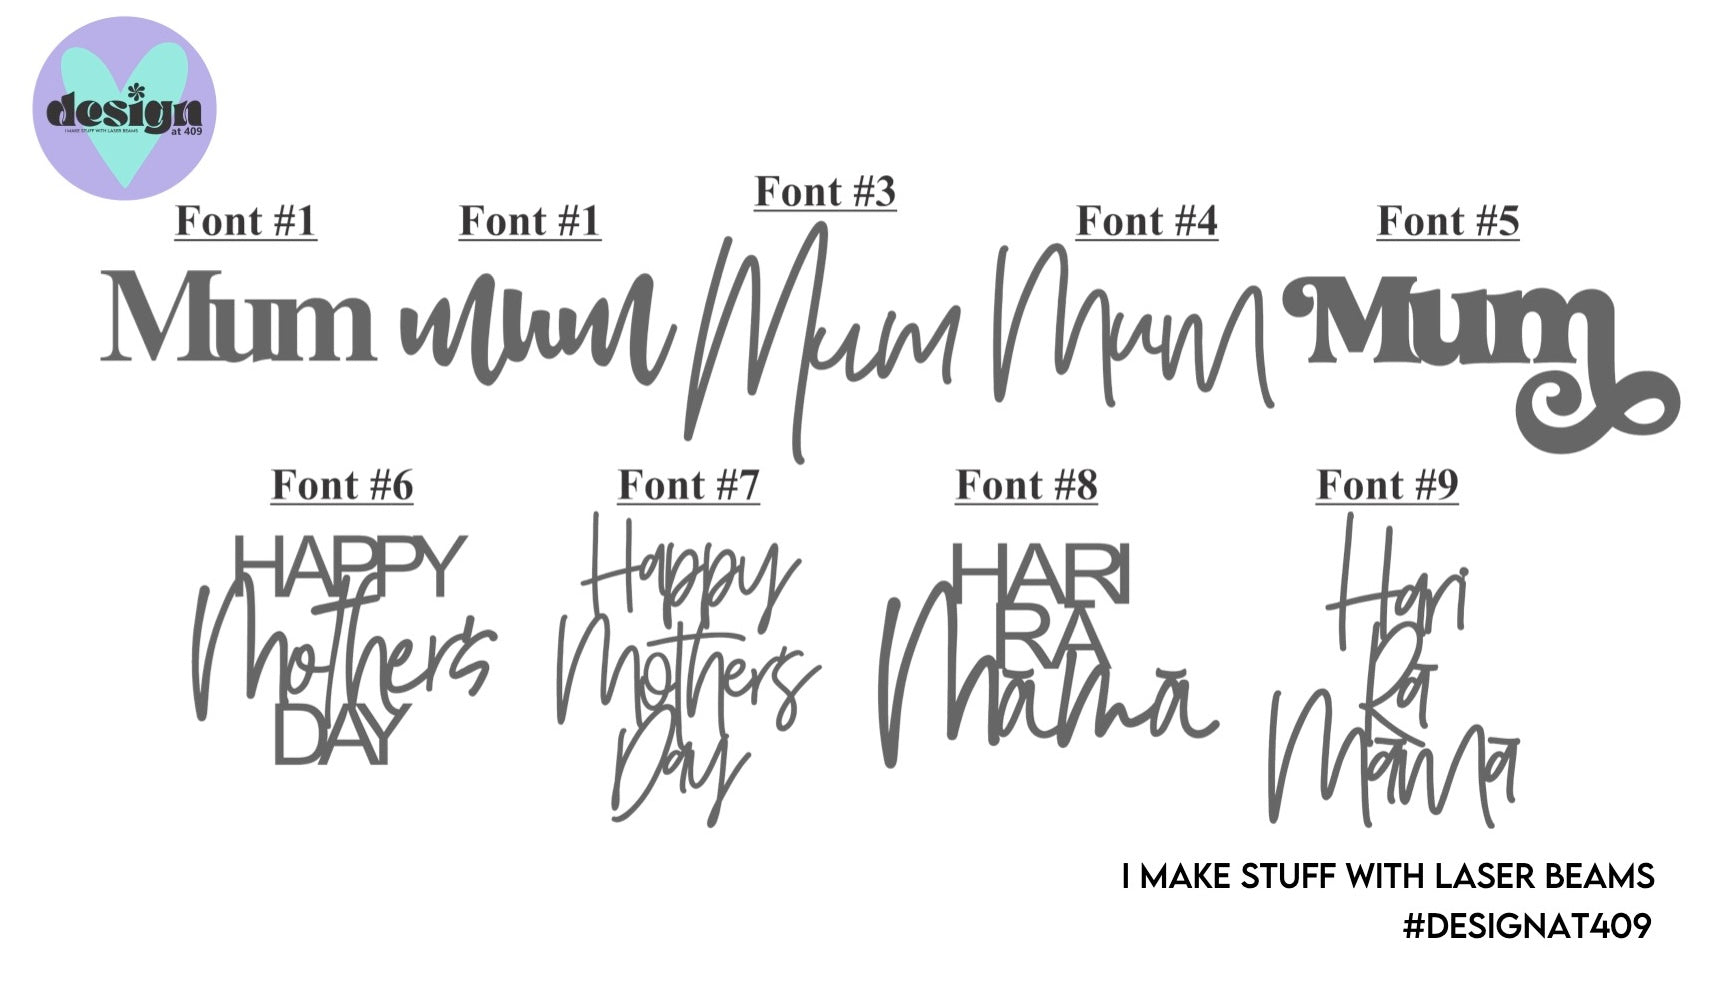 design
I MAKE STUFF WITH LASER BEAMS
at 409
Font #1 Font #1 Font #3 Font #4 Font #5
Mum mum Mum Mum Mum
Font #6 Font #7 Font #8 Font #9
HAPPY
Mother's
DAY
Happy
Mother's
Day
HARI
RA
Māmā
Hari
Rā
Māmā
I MAKE STUFF WITH LASER BEAMS
#DESIGNAT409